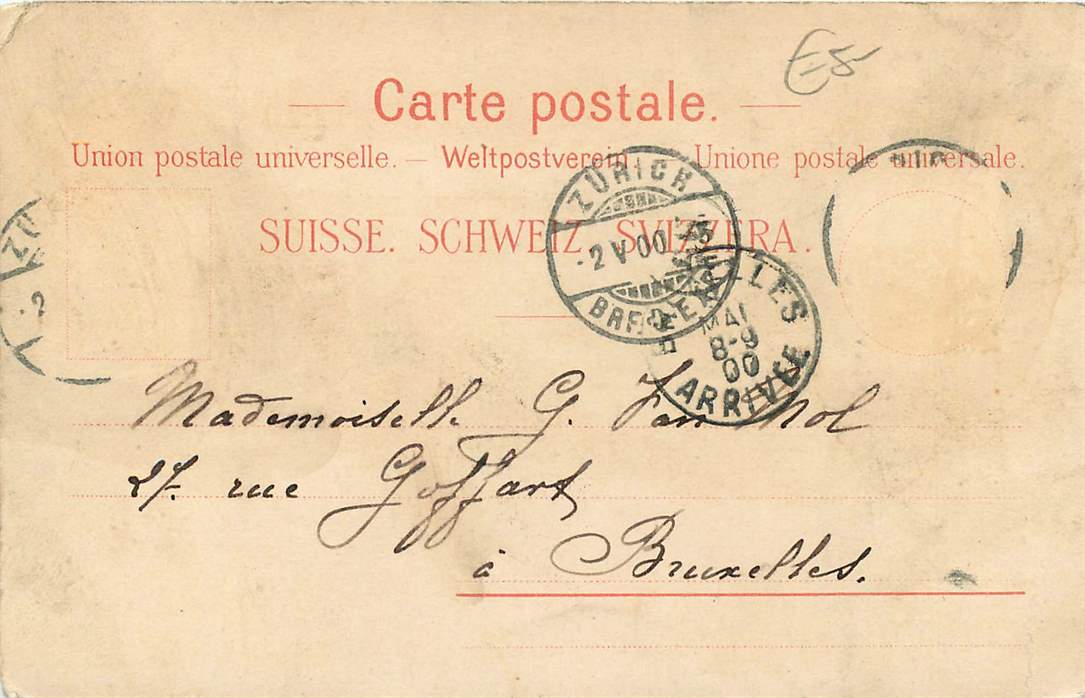 E5-
— Carte postale. —
Union postale universelle. — Weltpostverein Unione postale universale.
SUISSE. SCHWEIZ. SVIZZERA.
ZÜRICH
-2 V 00
ZÜ
-2
BRUXELLES
MAI
8-9
00
ARRIVÉE
Mademoiselle G. Van Mol
27. rue Goffart
à Bruxelles.